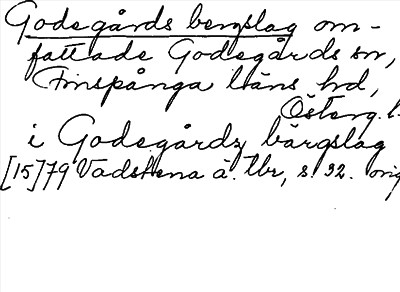 Godegårds bergslag om-
fattade Godegårds sn,
Finspånga läns hd,
Österg. l.
i Godegårdz bärgslag
[15]79 Vadstena ä. tbr, s. 92. orig